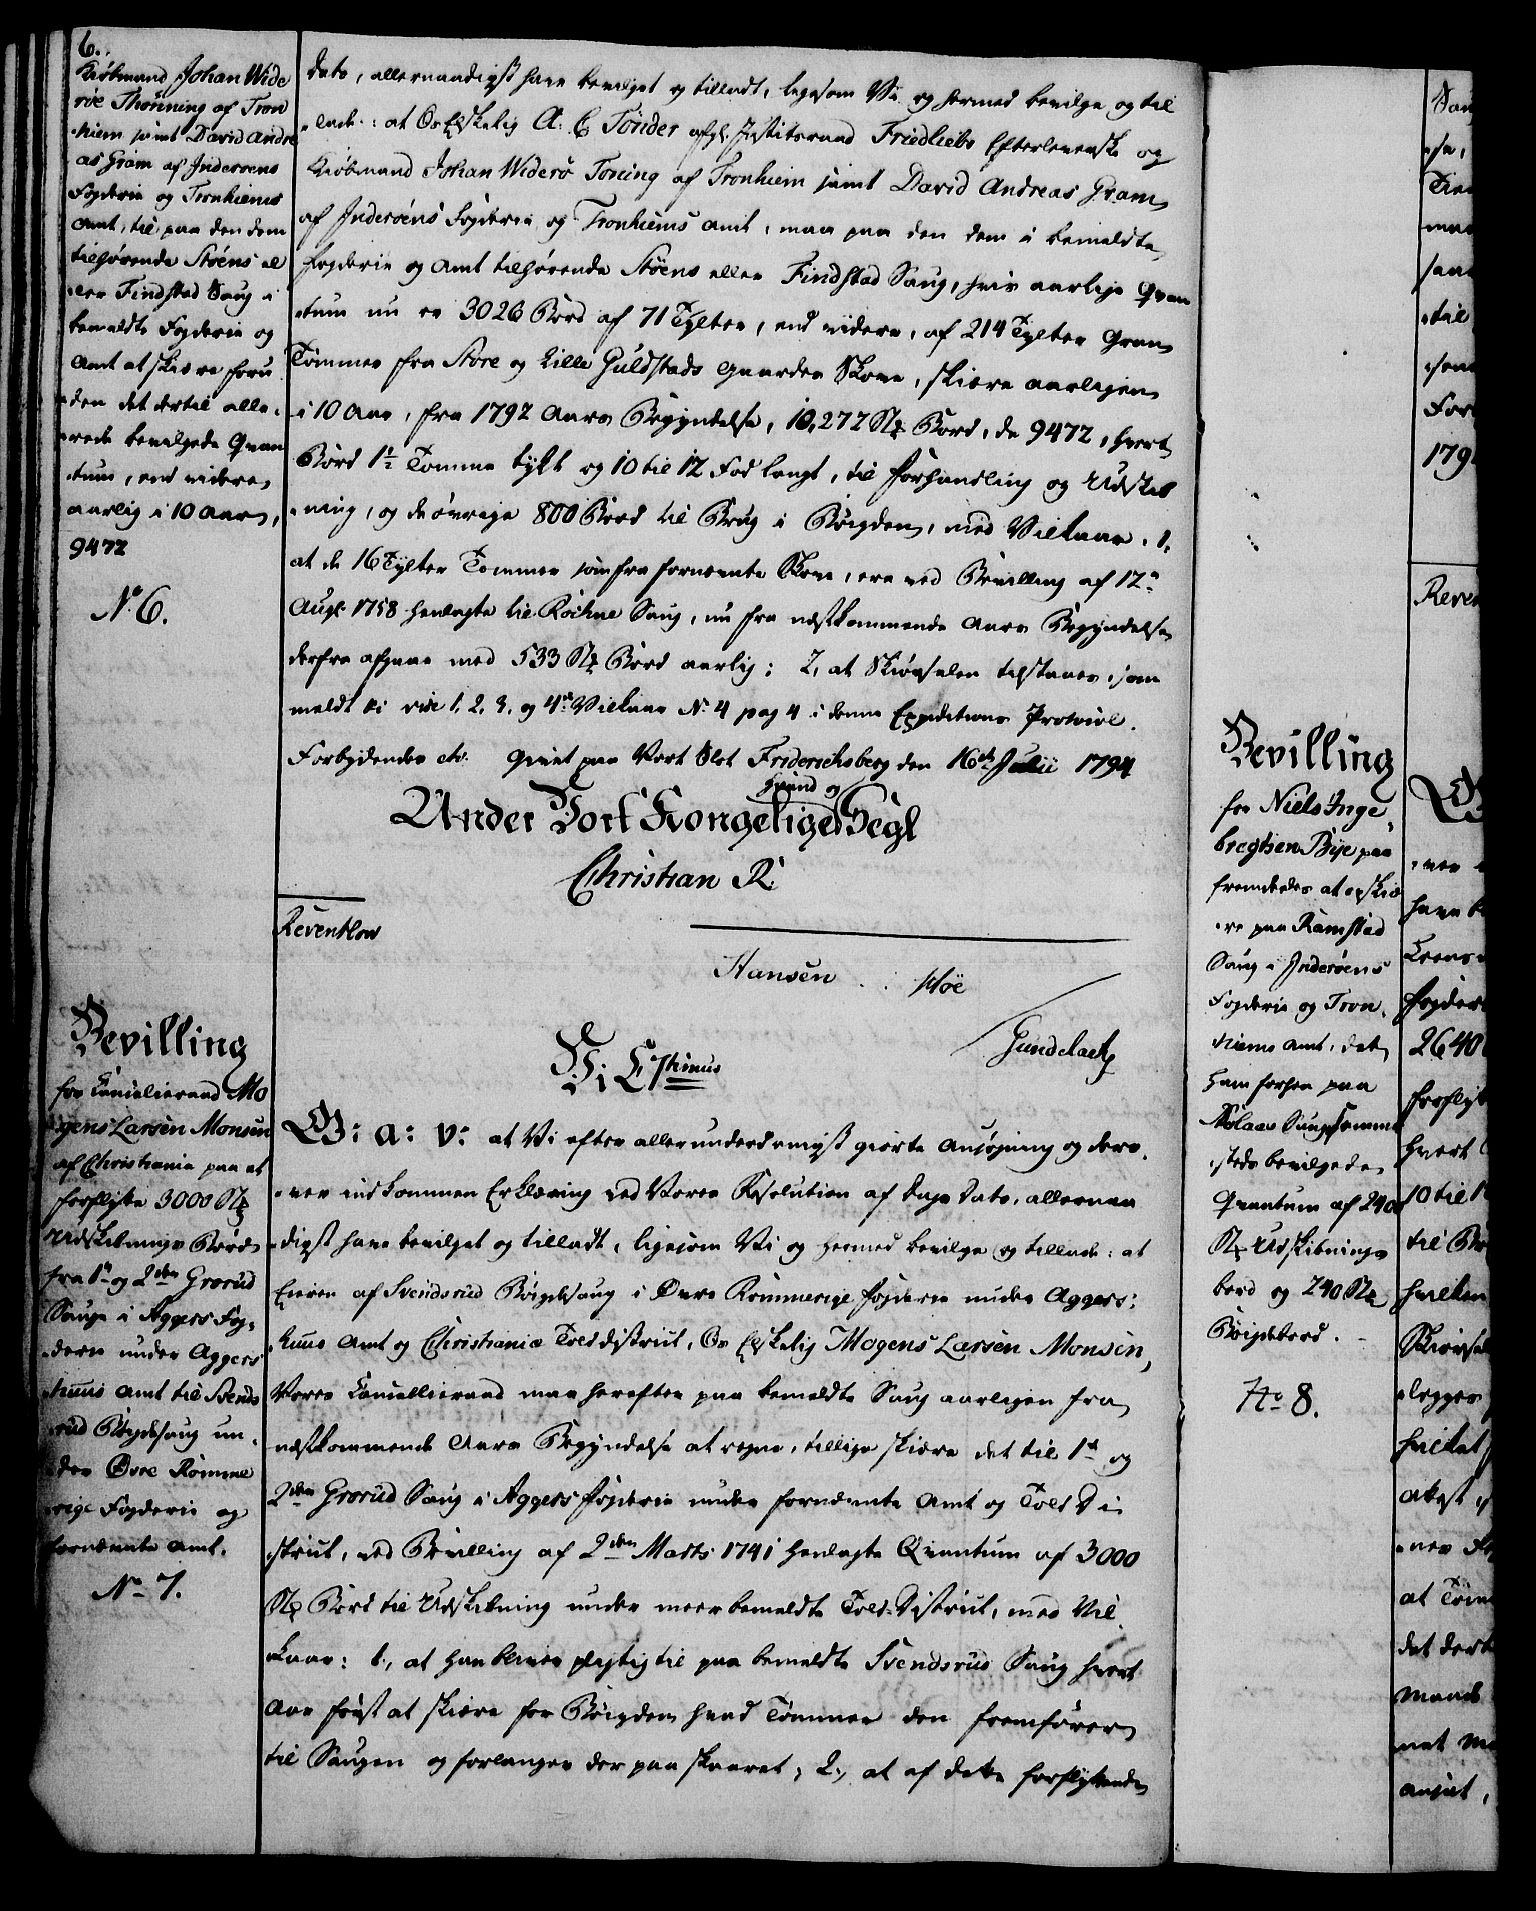 6.
Kiöbmand Johan Wide
röe Thonning af Tron
hiem samt David Andre
as Gram af Inderoens
Fogderie og Tronhiems
Amt, til paa den dem
tilhørende Støens el
ler Findstad Saug i
bemeldte Fogderie og
Amt at skiære foru
den det dertil alle¬
rede bevilgede Qvan
tum, end videre
aarlig i 10 Aar,
9472
No 6.
Dato, allernaadigst have bevilget og tilladt, ligesom Vi og hermed bevilge og til
lade: at Os Elskelig A. C Tönder afg. Justitsraad Friedliebs Efterleverske og
Kiöbmand Johan Widerö Toning af Tronhiem samt David Andreas Gram
af Inderöens Fogderie og Tronhiems Amt, maa paa den dem i bemeldte
Fogderie og Amt tilhørende Støens eller Findstad Saug, hvis aarlige Qvan
tum nu er 3026 Bord af 71 Tylter, end videre, af 214 Tylter Gran
Tømmer fra Store og Lille Guldstads Gaarders Skove, skiære aarligen
i 10 Aar, fra 1792 Aars Begyndelse, 10,272 St. Bord, de 9472, hvert
Bord 1½ Tomme tykt og 10 til 12 Fod langt, til Forhandling og Udskib
ning, og de øvrige 800 Bord til Brug i Bøigden, med Vilkaar, 1,
at de 16 Tylter Tømmer som fra fornævnte Skove, ere ved Bevilling af 12te
Augt. 1758 henlagte til Röehne Saug, nu fra nestkommende Aars Begyndelse
derfra afgaae med 533 St. Bord aarlig; 2, at Skiørselen tilstaaes, som
meldt ei vise 1, 2, 3, og 4de Vilkaar No 4 pag 4 i denne Expeditions Protocol.
Forbydendes etc. Givet paa Vort Slot Friderichsberg den 16de Julii 1794
Haand og
Under Vort Kongelige Segl
Christian R.
Reventlow
Hansen Høë
Gundelach
Bevilling
for Cancelieraad Mo
gens Larsen Monsen
af Christiania paa at
forflytte 3000 St.
Udskibnings Bord
fra 1te og 2den Grorud
Sauge i Aggers Fog¬
derie under Aggers
huus Amt til Svends
rud Bøigdesaug un¬
der Øvre Romme
rige Fogderie og
fornævnte Amt.
No 7.
Vi C 7timus
G: A: V: at Vi efter allerunderdanigst giorte Ansøgning og dero¬
ver indkommen Erklæring ved Vores Resolution af Dags Dato, allernaa
digst have bevilget og tilladt, ligesom Vi og hermed bevilge og tillade: at
Eieren af Svendsrud Bøigdesaug i Øvre Rommerige Fogderie under Aggers:
huus Amt og Christiania Tolddistrict, Os Elskelig Mogens Larsen Monsen,
Vores Cancellieraad maa herefter paa bemeldte Saug aarligen fra
nestkommende Aars Begyndelse at regne, tillige skiære det til 1te og
2den Grorud Saug i Aggers Fogderie under fornævnte Amt og Told Di
strict, ved Bevilling af 2den Marts 1741 henlagte Qvantum af 3000
St. Bord til Udskibning under meerbemeldte Told-District, med Vil¬
kaar: 1., at han bliver pligtig til paa bemeldte Svendsrud Saug hvert
Aar først at skiære for Bøigden hvad Tømmer den fremfører
til Saugen og forlanger der paa skaaret; 2., at af dette forflyttende
Bevilling
for Niels Inge¬
bregtsen Bye paa
fremdeeles at opskiæ
re paa Ramstad
Saug i Inderöens
Fogderie og Tron¬
hiems Amt, det
ham forhen paa
Saug sammes
steds bevilgede
Qvantum af 240
St. Udskibnings
bord og 240 St.
Bøigdebord.
No 8.
Sau
Tim
maa
saa
til
For
179
Reven
ver
have b
Fogder
2640
forflyt
hvert
10 til 1
til Br
hvilken
Skiørsel
legges
hvilket
at Tøm
det dert
Mands